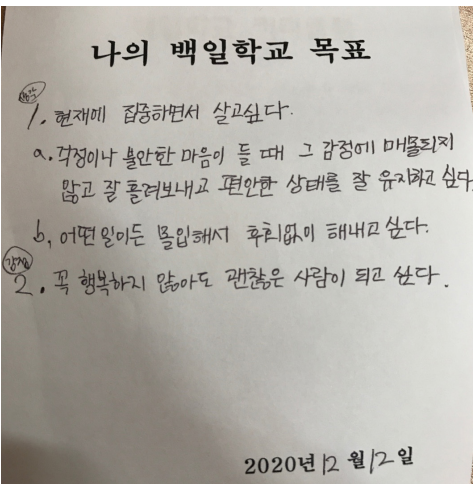 나의 백일학교 목표
생각
1. 현재에 집중하면서 살고싶다.
a. 걱정이나 불안한 마음이 들 때 그 감정에 매몰되지
않고 잘 흘려보내고 편안한 상태를 잘 유지하고 싶다
b, 어떤일이든 몰입해서 후회없이 해내고 싶다.
감정
2. 꼭 행복하지 않아도 괜찮은 사람이 되고 싶다.
2020년 12월 12일